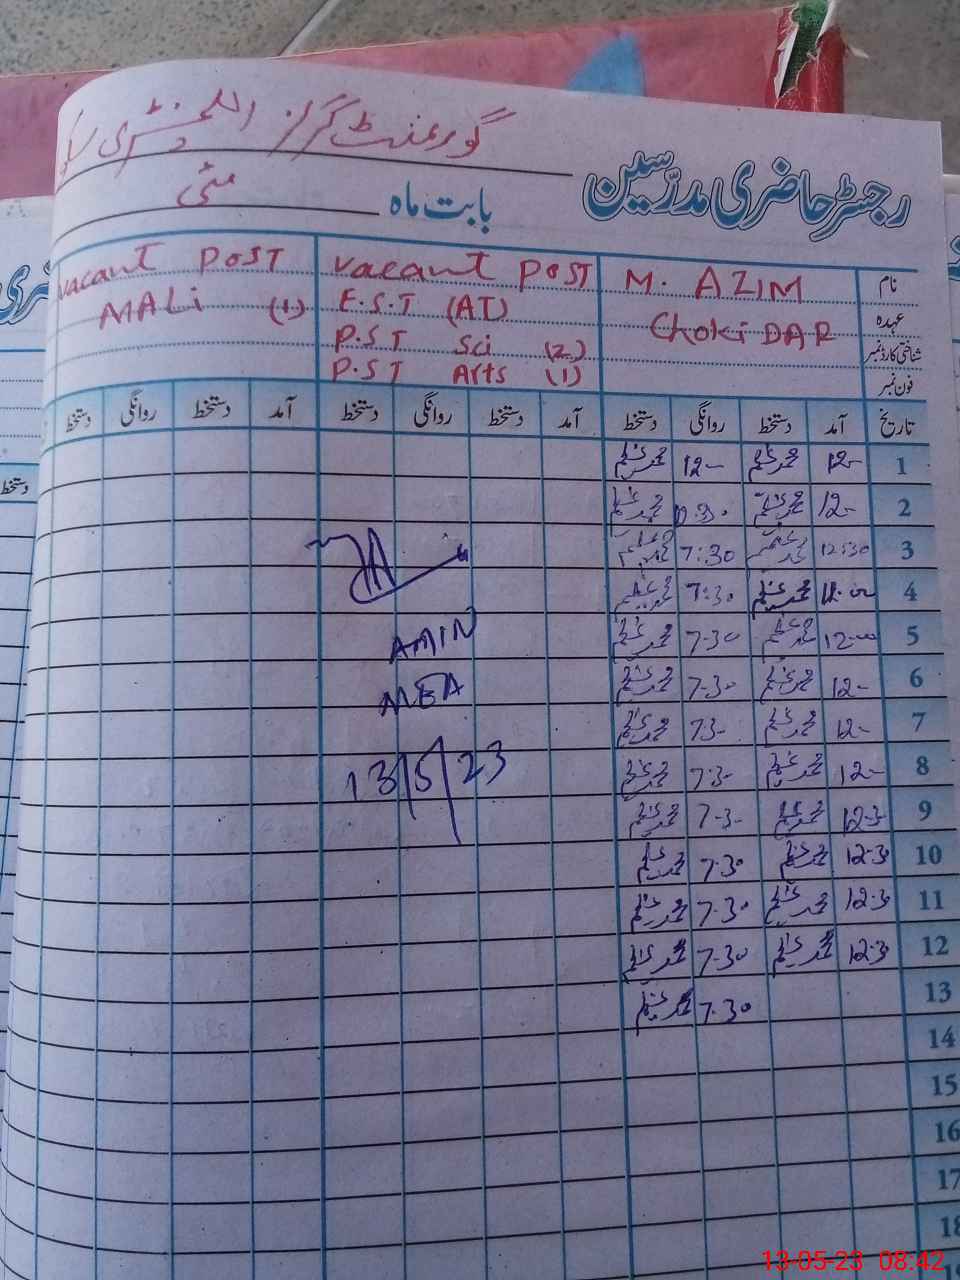 گورنمنٹ گرلز ایلیمنٹری
رجسٹر حاضری مدرسین
بابت ماہ مئی
نام
عہدہ
شناختی کارڈ نمبر
فون نمبر
M. AZIM
ChokiDAR
vacant POST
E.S.T (AT)
P.S.T Sci (2)
P.S.T Arts (1)
vacant POST
MALi (1)
تاریخ آمد دستخط روانگی دستخط آمد دستخط روانگی دستخط آمد دستخط روانگی دستخط
1 12- محمد عظیم 12- محمد عظیم
2 12- محمد عظیم محمد عظیم
3 12:30 محمد عظیم 7:30 محمد عظیم
4 محمد عظیم 7:30 محمد عظیم
5 12-00 محمد عظیم 7-30 محمد عظیم
6 12- محمد عظیم 7-30 محمد عظیم
7 12- محمد عظیم 73- محمد عظیم
8 12- محمد عظیم 7:3- محمد عظیم
9 12-3 محمد عظیم 7-3- محمد عظیم
10 12-30 محمد عظیم 7-30 محمد عظیم
11 12-30 محمد عظیم 7-30 محمد عظیم
12 12-30 محمد عظیم 7-30 محمد عظیم
13 7-30 محمد عظیم
14
15
16
17
18
AMIN
MEA
13/5/23
دستخط
13-05-23 08:42